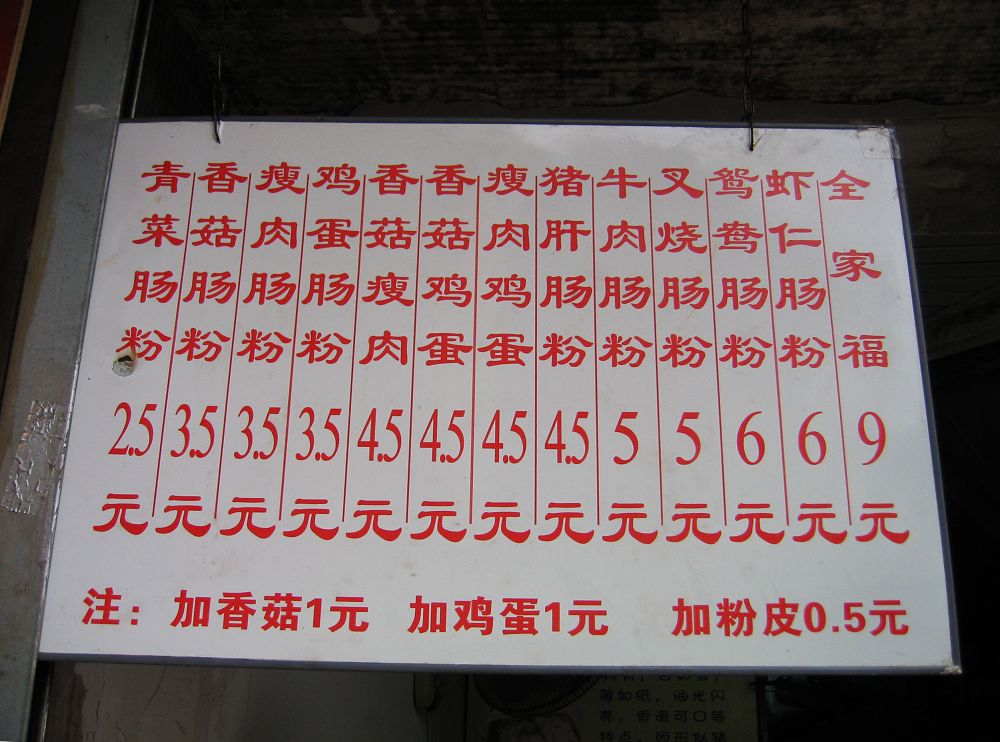 青菜肠粉2.5元
香菇肠粉3.5元
瘦肉肠粉3.5元
鸡蛋肠粉3.5元
香菇瘦肉4.5元
香菇鸡蛋4.5元
瘦肉鸡蛋4.5元
猪肝肠粉4.5元
牛肉肠粉5元
叉烧肠粉5元
鸳鸯肠粉6元
虾仁肠粉6元
全家福9元
注：加香菇1元 加鸡蛋1元 加粉皮0.5元
薄如纸，油光闪
亮，香滑可口等